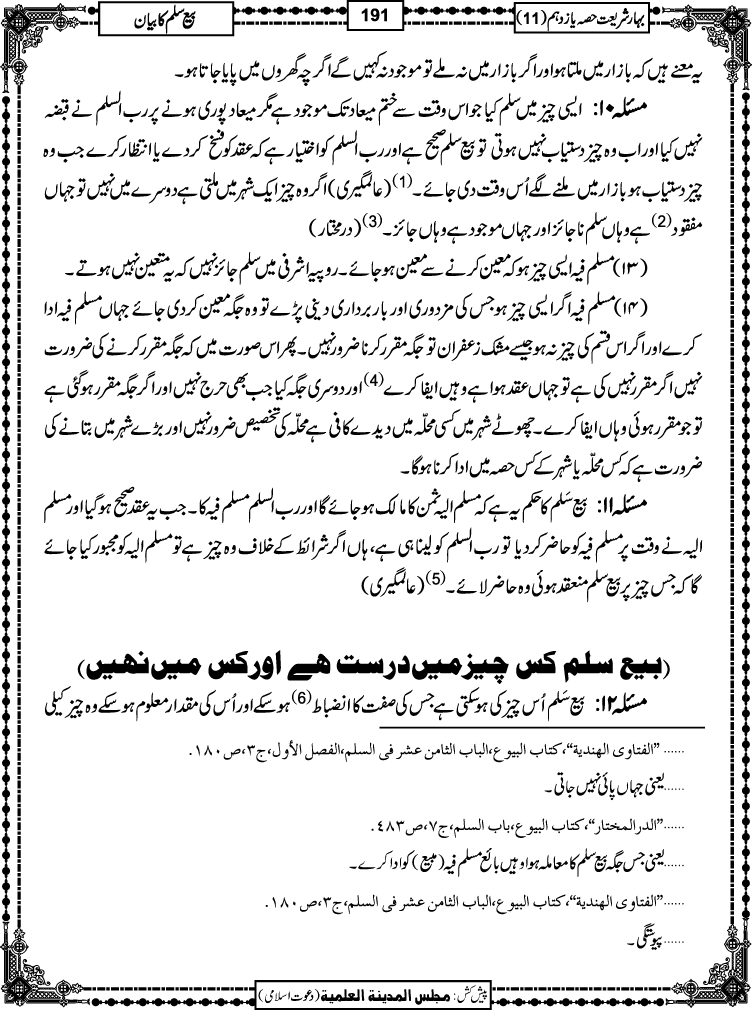 بہارِ شریعت حصہ یازدہم (11)
191
بیع سلم کا بیان
یہ معنے ہیں کہ بازار میں ملتا ہو اور اگر بازار میں نہ ملے تو موجود نہ کہیں گے اگرچہ گھروں میں پایا جاتا ہو۔
مسئلہ ۱۰: ایسی چیز میں سلم کیا جو اس وقت سے ختم میعاد تک موجود ہے مگر میعاد پوری ہونے پر رب السلم نے قبضہ
نہیں کیا اور اب وہ چیز دستیاب نہیں ہوتی تو بیع سلم صحیح ہے اور رب السلم کو اختیار ہے کہ عقد کو فسخ کر دے یا انتظار کرے جب وہ
چیز دستیاب ہو بازار میں ملنے لگے اُس وقت دی جائے۔(1) (عالمگیری) اگر وہ چیز ایک شہر میں ملتی ہے دوسرے میں نہیں تو جہاں
مفقود(2) ہے وہاں سلم ناجائز اور جہاں موجود ہے وہاں جائز۔(3) (درمختار)
(۱۳) مسلم فیہ ایسی چیز ہو کہ معین کرنے سے معین ہو جائے۔ روپیہ اشرفی میں سلم جائز نہیں کہ یہ متعین نہیں ہوتے۔
(۱۴) مسلم فیہ اگر ایسی چیز ہو جس کی مزدوری اور بار برداری دینی پڑے تو وہ جگہ معین کر دی جائے جہاں مسلم فیہ ادا
کرے اور اگر اس قسم کی چیز نہ ہو جیسے مشک زعفران تو جگہ مقرر کرنا ضرور نہیں۔ پھر اس صورت میں کہ جگہ مقرر کرنے کی ضرورت
نہیں اگر مقرر نہیں کی ہے تو جہاں عقد ہوا ہے وہیں ایفا کرے(4) اور دوسری جگہ کیا جب بھی حرج نہیں اور اگر جگہ مقرر ہو گئی ہے
تو جو مقرر ہوئی وہاں ایفا کرے۔ چھوٹے شہر میں کسی محلّہ میں دیدے کافی ہے محلّہ کی تخصیص ضرور نہیں اور بڑے شہر میں بتانے کی
ضرورت ہے کہ کس محلّہ یا شہر کے کس حصہ میں ادا کرنا ہوگا۔
مسئلہ ۱۱: بیع سَلم کا حکم یہ ہے کہ مسلم الیہ ثمن کا مالک ہو جائے گا اور رب السلم مسلم فیہ کا۔ جب یہ عقد صحیح ہو گیا اور مسلم
الیہ نے وقت پر مسلم فیہ کو حاضر کر دیا تو رب السلم کو لینا ہی ہے، ہاں اگر شرائط کے خلاف وہ چیز ہے تو مسلم الیہ کو مجبور کیا جائے
گا کہ جس چیز پر بیع سلم منعقد ہوئی وہ حاضر لائے۔(5) (عالمگیری)
(بیع سلم کس چیز میں درست ہے اور کس میں نہیں)
مسئلہ ۱۲: بیع سَلم اُس چیز کی ہو سکتی ہے جس کی صفت کا انضباط(6) ہو سکے اور اُس کی مقدار معلوم ہو سکے وہ چیز کیلی
......”الفتاوی الهندية“، كتاب البيوع، الباب الثامن عشر فى السلم، الفصل الأول، ج۳، ص۱۸۰.
......یعنی جہاں پائی نہیں جاتی۔
......”الدرالمختار“، كتاب البيوع، باب السلم، ج۷، ص۴۸۳.
......یعنی جس جگہ بیع سلم کا معاملہ ہوا وہیں بائع مسلم فیہ (مبیع) کو ادا کرے۔
......”الفتاوی الهندية“، كتاب البيوع، الباب الثامن عشر فى السلم، ج۳، ص۱۸۰.
......پیوستگی۔
پیش کش: مجلس المدينة العلمية (دعوتِ اسلامی)